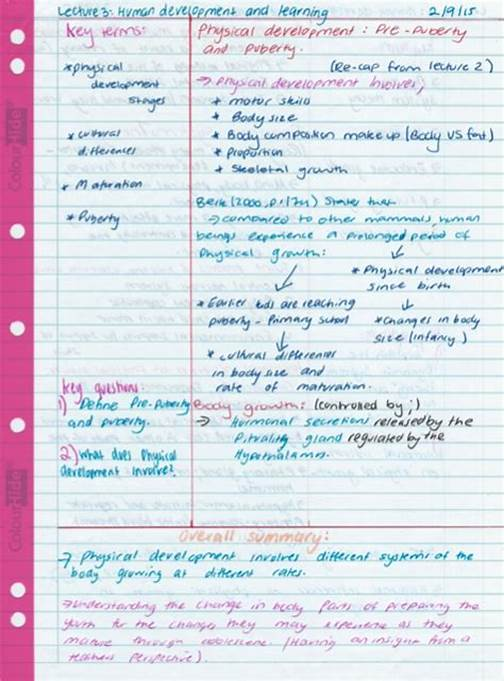 Lecture 3: Human development and learning 2/9/15
Key terms:
*physical
development
stages
*cultural
differences
* Maturation
* Puberty
Key questions:
1) Define Pre-Puberty
and puberty.
2) what does Physical
development involve?
Physical development: Pre-Puberty
and Puberty.
(Re-cap from lecture 2)
→ Physical development involves;
* motor skills
* Body size
* Body composition make up (Body VS font)
* Proportion
* Skeletal growth
Berk (2000, p.174) States that
→ compared to other mammals, human
beings experience a prolonged period of
Physical growth:
* Earlier kids are reaching
puberty - Primary school
* cultural differences
in body size and
rate of maturation.
* Physical development
since birth
*Changes in body
size (infancy)
Body growth: (controlled by;)
→ Hormonal secretion released by the
Pituitary gland regulated by the
Hypothalamus.
Overall summary:
→ Physical development involves different systems of the
body growing at different rates.
→understanding the change in body Parts of preparing the
youth for the changes they may experience as they
mature through adolescence. (Having an insight from a
teachers Perspective).
ColourHide
ColourHide